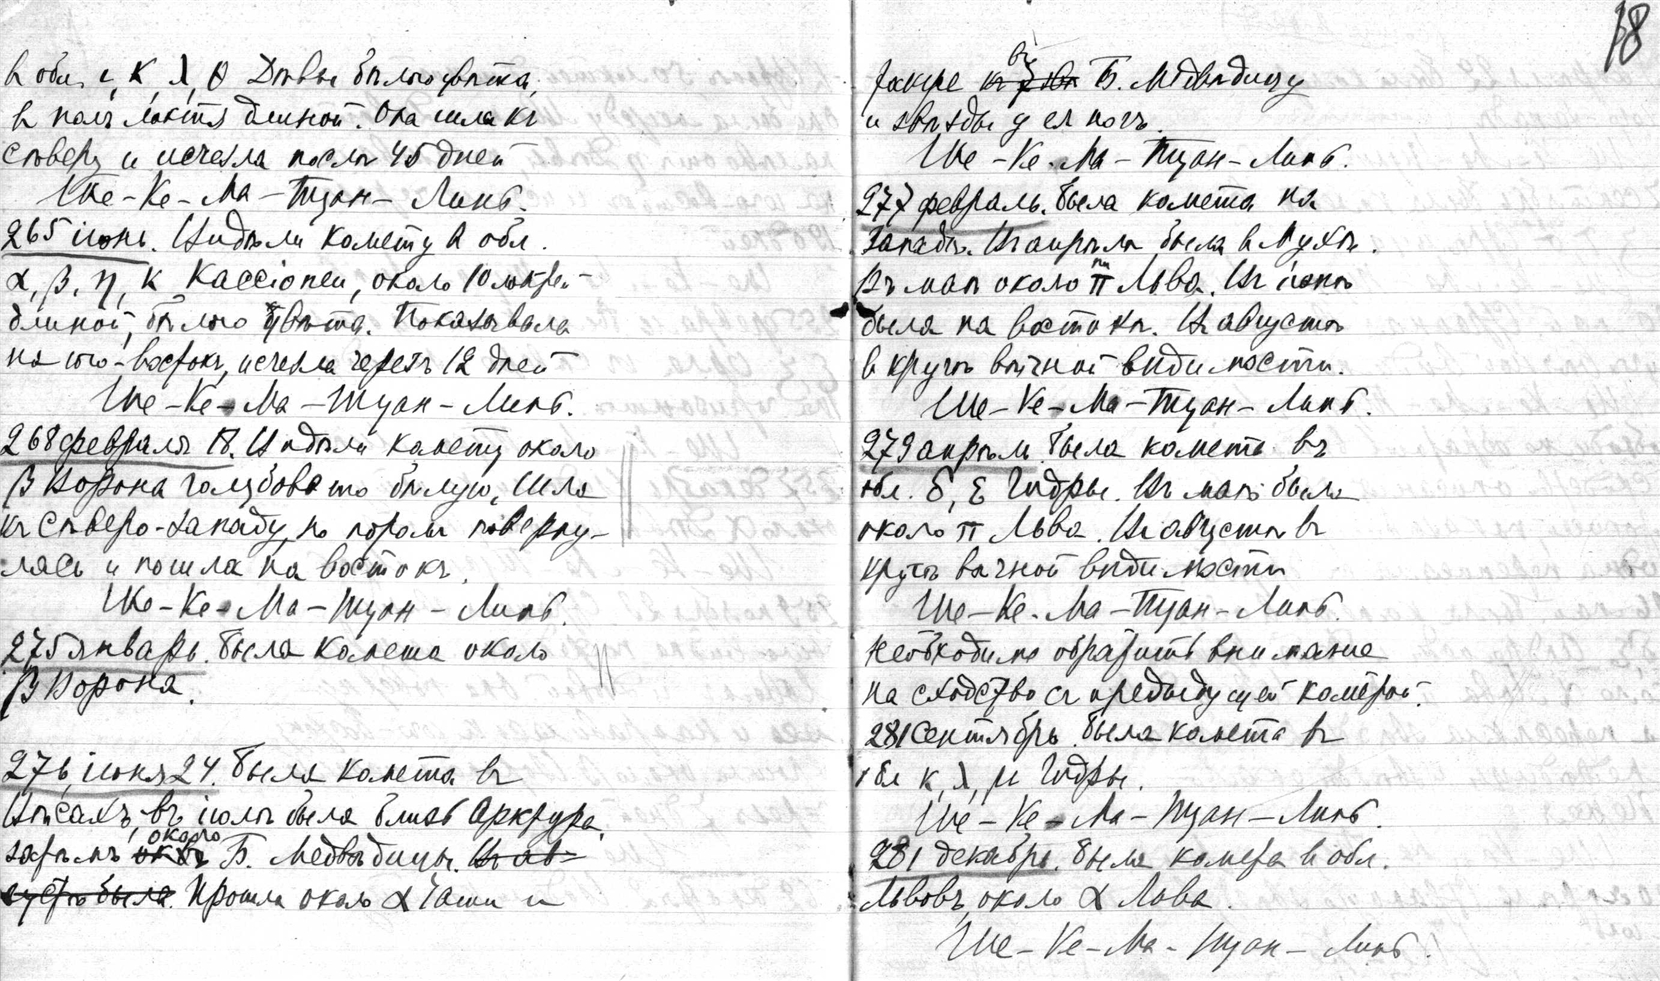 в обл. ι, κ, λ, θ Дѣвы бѣлаго цвѣта,
в полъ локтя длиной. Она шла къ
сѣверу и исчезла послѣ 45 дней
Ше-Ке-Ма-Туан-Линь.
265 іюнь. Видѣли комету в обл.
α, β, η, κ Кассіопеи, около 10 локтей
длиной, бѣлаго цвѣта. Показывала
на юго-востокъ, исчезла черезъ 12 дней
Ше-Ке-Ма-Туан-Линь.
268 февраля 18. Видѣли комету около
β Ворона голубовато бѣлую, шла
къ сѣверо-западу, но потом поверну-
лась и пошла на востокъ.
Ше-Ке-Ма-Туан-Линь.
275 январь. Была комета около
β Ворона.
276, іюня 24. Была комета въ
Вѣсахъ, въ іюлѣ была близь Арктура,
затѣмъ около Б. Медвѣдицы. Въ ав-
густѣ была. Прошла около α Чаши и
38
въ Б. Медвѣдицу
и звѣзды у ея ногъ.
Ше-Ке-Ма-Туан-Линь.
277 февраль. Была комета на
западѣ. Въ апрѣлѣ была в Мухѣ.
Въ маѣ около π Льва. Въ іюнѣ
была на востокѣ. Въ августѣ
в кругѣ вѣчной видимости.
Ше-Ке-Ма-Туан-Линь.
279 апрѣль была комета въ
обл. δ, ε Гидры. Въ маѣ была
около π Льва. Въ августѣ въ
кругѣ вѣчной видимости
Ше-Ке-Ма-Туан-Линь.
Необходимо обратить вниманіе
на сходство съ предыдущей кометой.
281 сентябрь. Была комета въ
обл κ, λ, μ Гидры.
Ше-Ке-Ма-Туан-Линь.
281 декабрь. Была комета в обл.
Львовъ, около α Льва.
Ше-Ке-Ма-Туан-Линь.